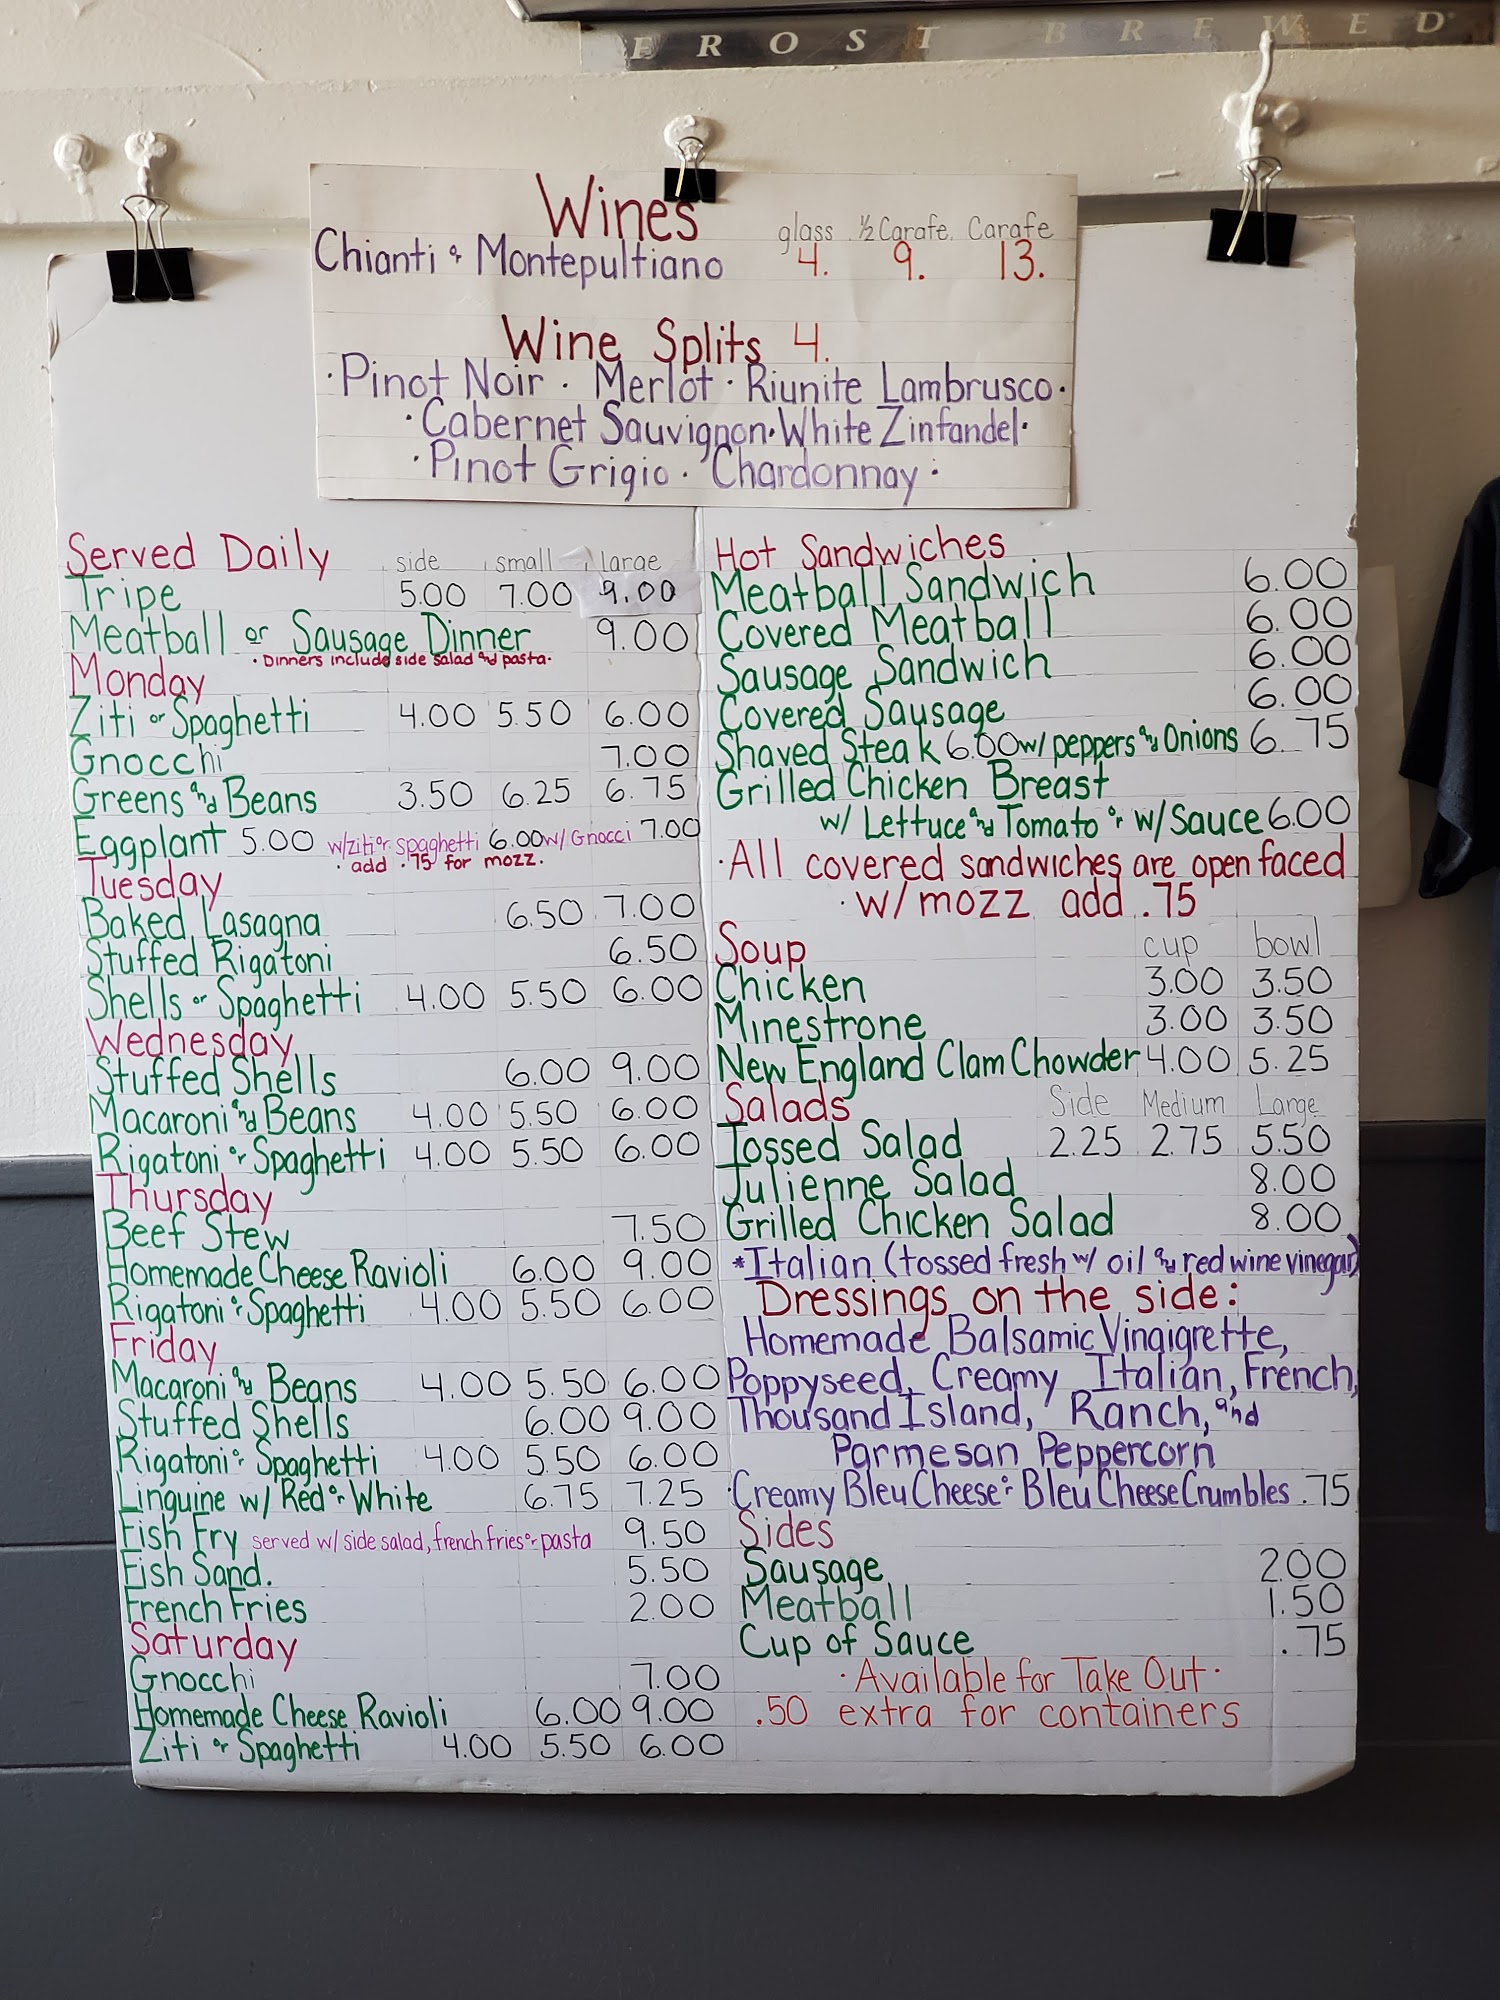 FROST BREWED
Wines
glass ½ Carafe Carafe
Chianti or Montepultiano 4. 9. 13.
Wine Splits 4.
· Pinot Noir · Merlot · Riunite Lambrusco ·
· Cabernet Sauvignon · White Zinfandel ·
· Pinot Grigio · Chardonnay ·
Served Daily side small large
Tripe 5.00 7.00 9.00
Meatball or Sausage Dinner 9.00
· Dinners include side salad and pasta ·
Monday
Ziti or Spaghetti 4.00 5.50 6.00
Gnocchi 7.00
Greens and Beans 3.50 6.25 6.75
Eggplant 5.00 w/ziti or spaghetti 6.00 w/ Gnocci 7.00
· add .75 for mozz.
Tuesday
Baked Lasagna 6.50 7.00
Stuffed Rigatoni 6.50
Shells or Spaghetti 4.00 5.50 6.00
Wednesday
Stuffed Shells 6.00 9.00
Macaroni and Beans 4.00 5.50 6.00
Rigatoni or Spaghetti 4.00 5.50 6.00
Thursday
Beef Stew 7.50
Homemade Cheese Ravioli 6.00 9.00
Rigatoni or Spaghetti 4.00 5.50 6.00
Friday
Macaroni and Beans 4.00 5.50 6.00
Stuffed Shells 6.00 9.00
Rigatoni or Spaghetti 4.00 5.50 6.00
Linguine w/ Red or White 6.75 7.25
Fish Fry served w/ side salad, french fries or pasta 9.50
Fish Sand. 5.50
French Fries 2.00
Saturday
Gnocchi 7.00
Homemade Cheese Ravioli 6.00 9.00
Ziti or Spaghetti 4.00 5.50 6.00
Hot Sandwiches
Meatball Sandwich 6.00
Covered Meatball 6.00
Sausage Sandwich 6.00
Covered Sausage 6.00
Shaved Steak 6.00 w/ peppers and Onions 6.75
Grilled Chicken Breast
w/ Lettuce and Tomato or w/ Sauce 6.00
· All covered sandwiches are open faced
· w/ mozz add .75
Soup cup bowl
Chicken 3.00 3.50
Minestrone 3.00 3.50
New England Clam Chowder 4.00 5.25
Salads Side Medium Large
Tossed Salad 2.25 2.75 5.50
Julienne Salad 8.00
Grilled Chicken Salad 8.00
*Italian (tossed fresh w/ oil and red wine vinegar)
Dressings on the side:
Homemade Balsamic Vinaigrette,
Poppyseed, Creamy Italian, French,
Thousand Island, Ranch, and
Parmesan Peppercorn
· Creamy Bleu Cheese or Bleu Cheese Crumbles .75
Sides
Sausage 2.00
Meatball 1.50
Cup of Sauce .75
· Available for Take Out ·
.50 extra for containers